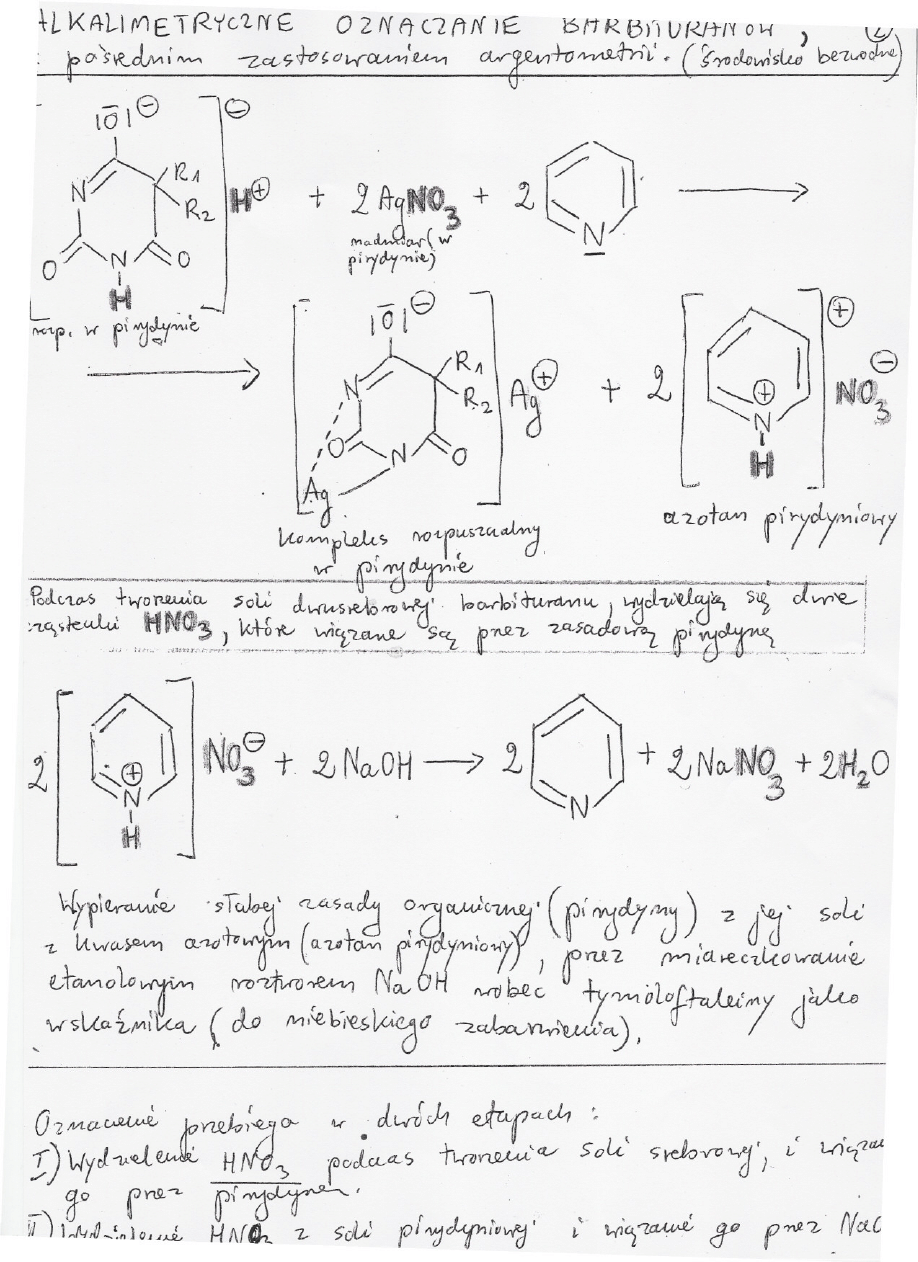 ALKALIMETRYCZNE OZNACZANIE BARBITURANÓW, (2)
z pośrednim zastosowaniem argentometrii. (środowisko bezwodne)
|O|⊖ ⊖
N R1 R2 H⊕ + 2 AgNO3 + 2 N →
O N O
H
nadmiar (w
pirydynie)
rozp. w pirydynie
→ |O|⊖
N R1 R2 Ag⊕ + 2 ⊕ N H ⊕ NO3⊖
O N O
Ag
kompleks rozpuszczalny
w pirydynie
azotan pirydyniowy
Podczas tworzenia soli dwusrebrowej barbituranu, wydzielają się dwie
cząsteczki HNO3, które wiązane są przez zasadową pirydynę
2 ⊕ N H NO3⊖ + 2 NaOH → 2 N + 2 NaNO3 + 2H2O
Wypieranie słabej zasady organicznej (pirydyny) z jej soli
z kwasem azotowym (azotan pirydyniowy), przez miareczkowanie
etanolowym roztworem NaOH wobec tymoloftaleiny jako
wskaźnika (do niebieskiego zabarwienia).
Oznaczenie przebiega w dwóch etapach:
I) Wydzielenie HNO3 podczas tworzenia soli srebrowej, i wiązan
go przez pirydynę.
II) Wydzielenie HNO3 z soli pirydyniowej i wiązanie go przez NaO